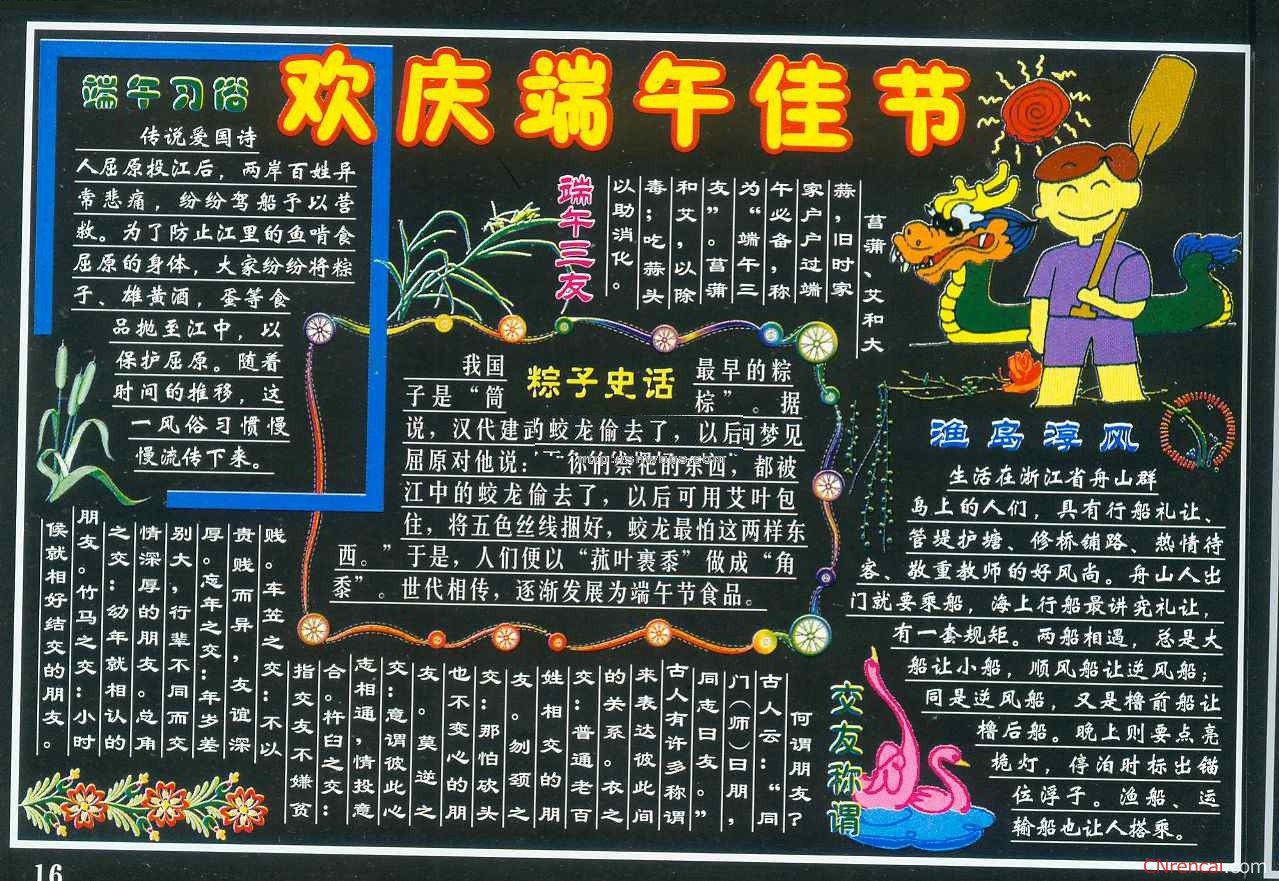 欢庆端午佳节
端午习俗
传说爱国诗
人屈原投江后，两岸百姓异
常悲痛，纷纷驾船予以营
救。为了防止江里的鱼啃食
屈原的身体，大家纷纷将粽
子、雄黄酒，蛋等食
品抛至江中，以
保护屈原。随着
时间的推移，这
一风俗习惯慢
慢流传下来。
端午三友
菖蒲、艾和大
蒜，旧时家
家户户过端
午必备，称
为“端午三
友”。菖蒲
和艾，以除
毒；吃蒜头
以助消化。
粽子史话
我国最早的粽
子是“筒棕”。据
说，汉代建武蛟龙偷去了，以后可梦见
屈原对他说：
的东西，都被
江中的蛟龙偷去了，以后可用艾叶包
住，将五色丝线捆好，蛟龙最怕这两样东
西。”于是，人们便以“菰叶裹黍”做成“角
黍”。世代相传，逐渐发展为端午节食品。
渔岛淳风
生活在浙江省舟山群
岛上的人们，具有行船礼让、
管堤护塘、修桥铺路、热情待
客、敬重教师的好风尚。舟山人出
门就要乘船，海上行船最讲究礼让，
有一套规矩。两船相遇，总是大
船让小船，顺风船让逆风船；
同是逆风船，又是橹前船让
橹后船。晚上则要点亮
桅灯，停泊时标出锚
位浮子。渔船、运
输船也让人搭乘。
交友称谓
何谓朋友？
古人云：“同
门（师）曰朋，
同志曰友。”
古人有许多称谓
来表达彼此间
的关系。衣之
交：普通老百
姓相交的朋
友。刎颈之
交：那怕砍头
也不变心的朋
友。莫逆之
交：意谓彼此心
志相通，情投意
合。杵臼之交：
指交友不嫌贫
贱。车笠之交：不以
贵贱而异，友谊深
厚。忘年之交：年岁差
别大，行辈不同而交
情深厚的朋友。总角
之交：幼年就相认的
朋友。竹马之交：小时
候就相好结交的朋友。
16
CNrencai.com